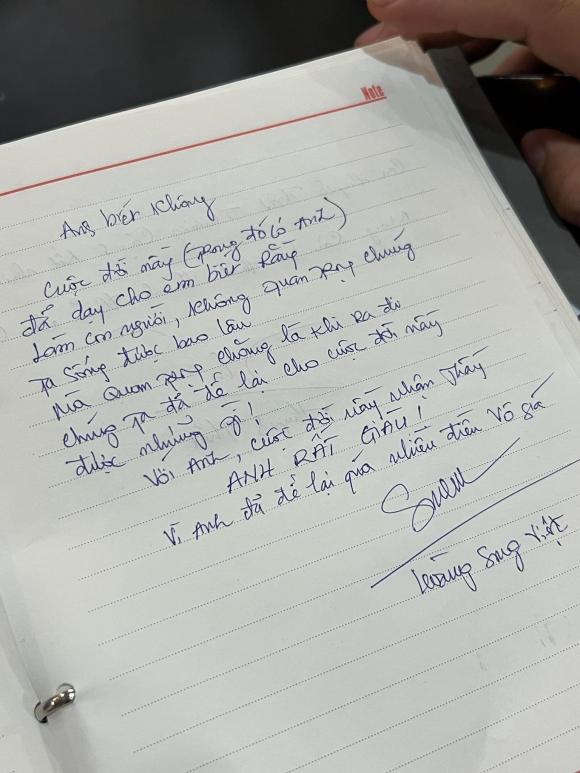 Note
Anh biết không
Cuộc đời này (trong đó có Anh)
đã dạy cho em biết rằng
Làm con người, không quan trọng chúng
ta sống được bao lâu
Mà quan trọng chăng là khi ra đi
chúng ta đã để lại cho cuộc đời này
được những gì!
Với Anh, cuộc đời này nhận thấy
ANH RẤT GIÀU!
Vì Anh đã để lại quá nhiều điều vô giá
Hoàng Song Việt